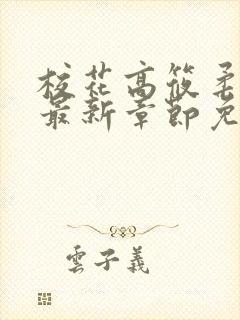 校花高筱柔
最新章節免
雲子義